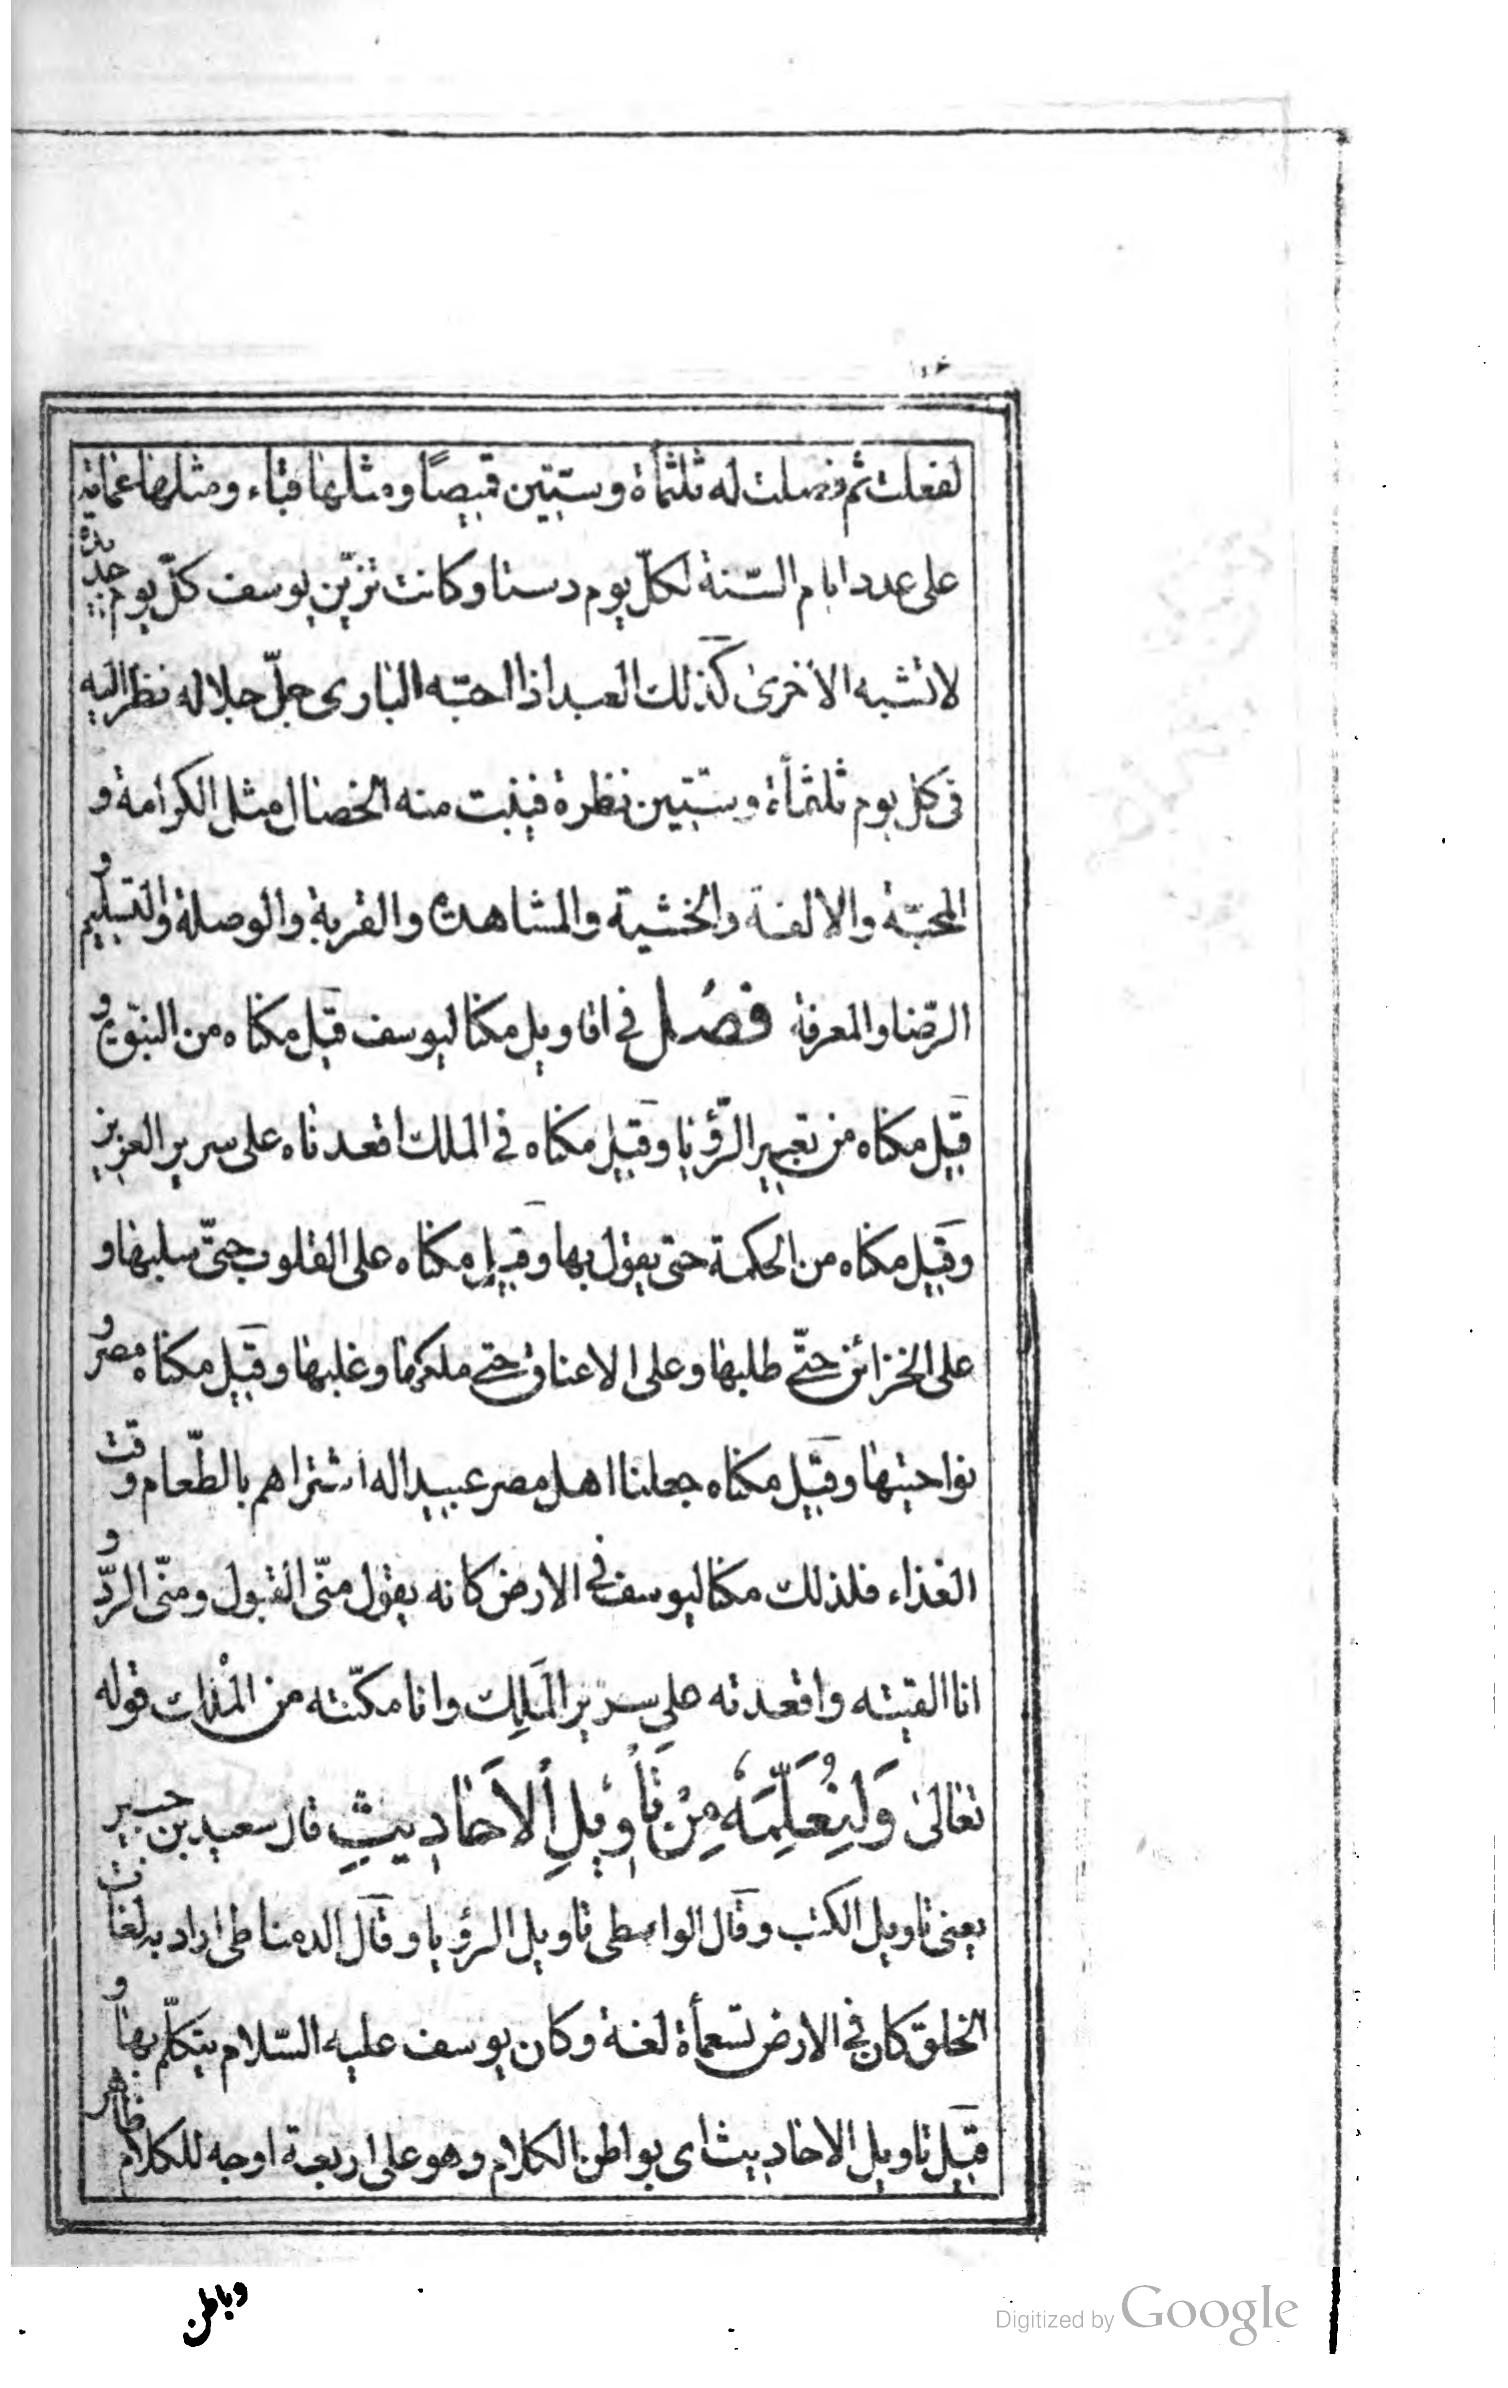 لفعلت ثم فصلت له ثلثمأة وستين قميصًا ومثلها قباء ومثلها عمامة
على عدد ايام السّنة لكلّ يوم دستا وكانت تزيّن يوسف كلّ يوم جديدة
لا تشبه الاخرى كذلك العبد اذا احبّه البارى جلّ جلاله نظر اليه
فى كل يوم ثلثمأة وستين نظرة فينبت منه الخصال مثل الكرامة و
المحبّة والالفة والخشية والمشاهدة والقربة والوصلة والتسليم و
الرّضا والمعرفة فصل في اقاويل مكنا ليوسف قيل مكناه من النبوّة و
قيل مكناه من تعبير الرّؤيا وقيل مكناه في الملك اقعدناه على سرير العزيز
وقيل مكناه من الحكمة حتى يقول بها وقيل مكناه على القلوب حتّى سلبها و
على الخزائن حتّى طلبها وعلى الاعناق حتى ملكها وغلبها وقيل مكناه مصر و
نواحيتها وقيل مكناه جعلنا اهل مصر عبيدا له اشتراهم بالطّعام وقت
الغذاء فلذلك مكنا ليوسف فى الارض كانه يقول منّى القبول ومنّى الردّ و
انا القيته واقعدته على سرير الملك وانا مكنّته من الملك قوله
تعالى وَلِنُعَلِّمَهُ مِنْ تَأْوِيلِ الْأَحَادِيثِ قال سعيد بن جبير
يعنى تاويل الكتب وقال الواسطى تاويل الرؤيا وقال الدمناطى اراد به لغات
الخلق كان فى الارض تسعمأة لغة وكان يوسف عليه السّلام يتكلّم بها و
قيل تاويل الاحاديث اى بواطن الكلام وهو على اربعة اوجه للكلام ظاهر
وباطن
Digitized by Google